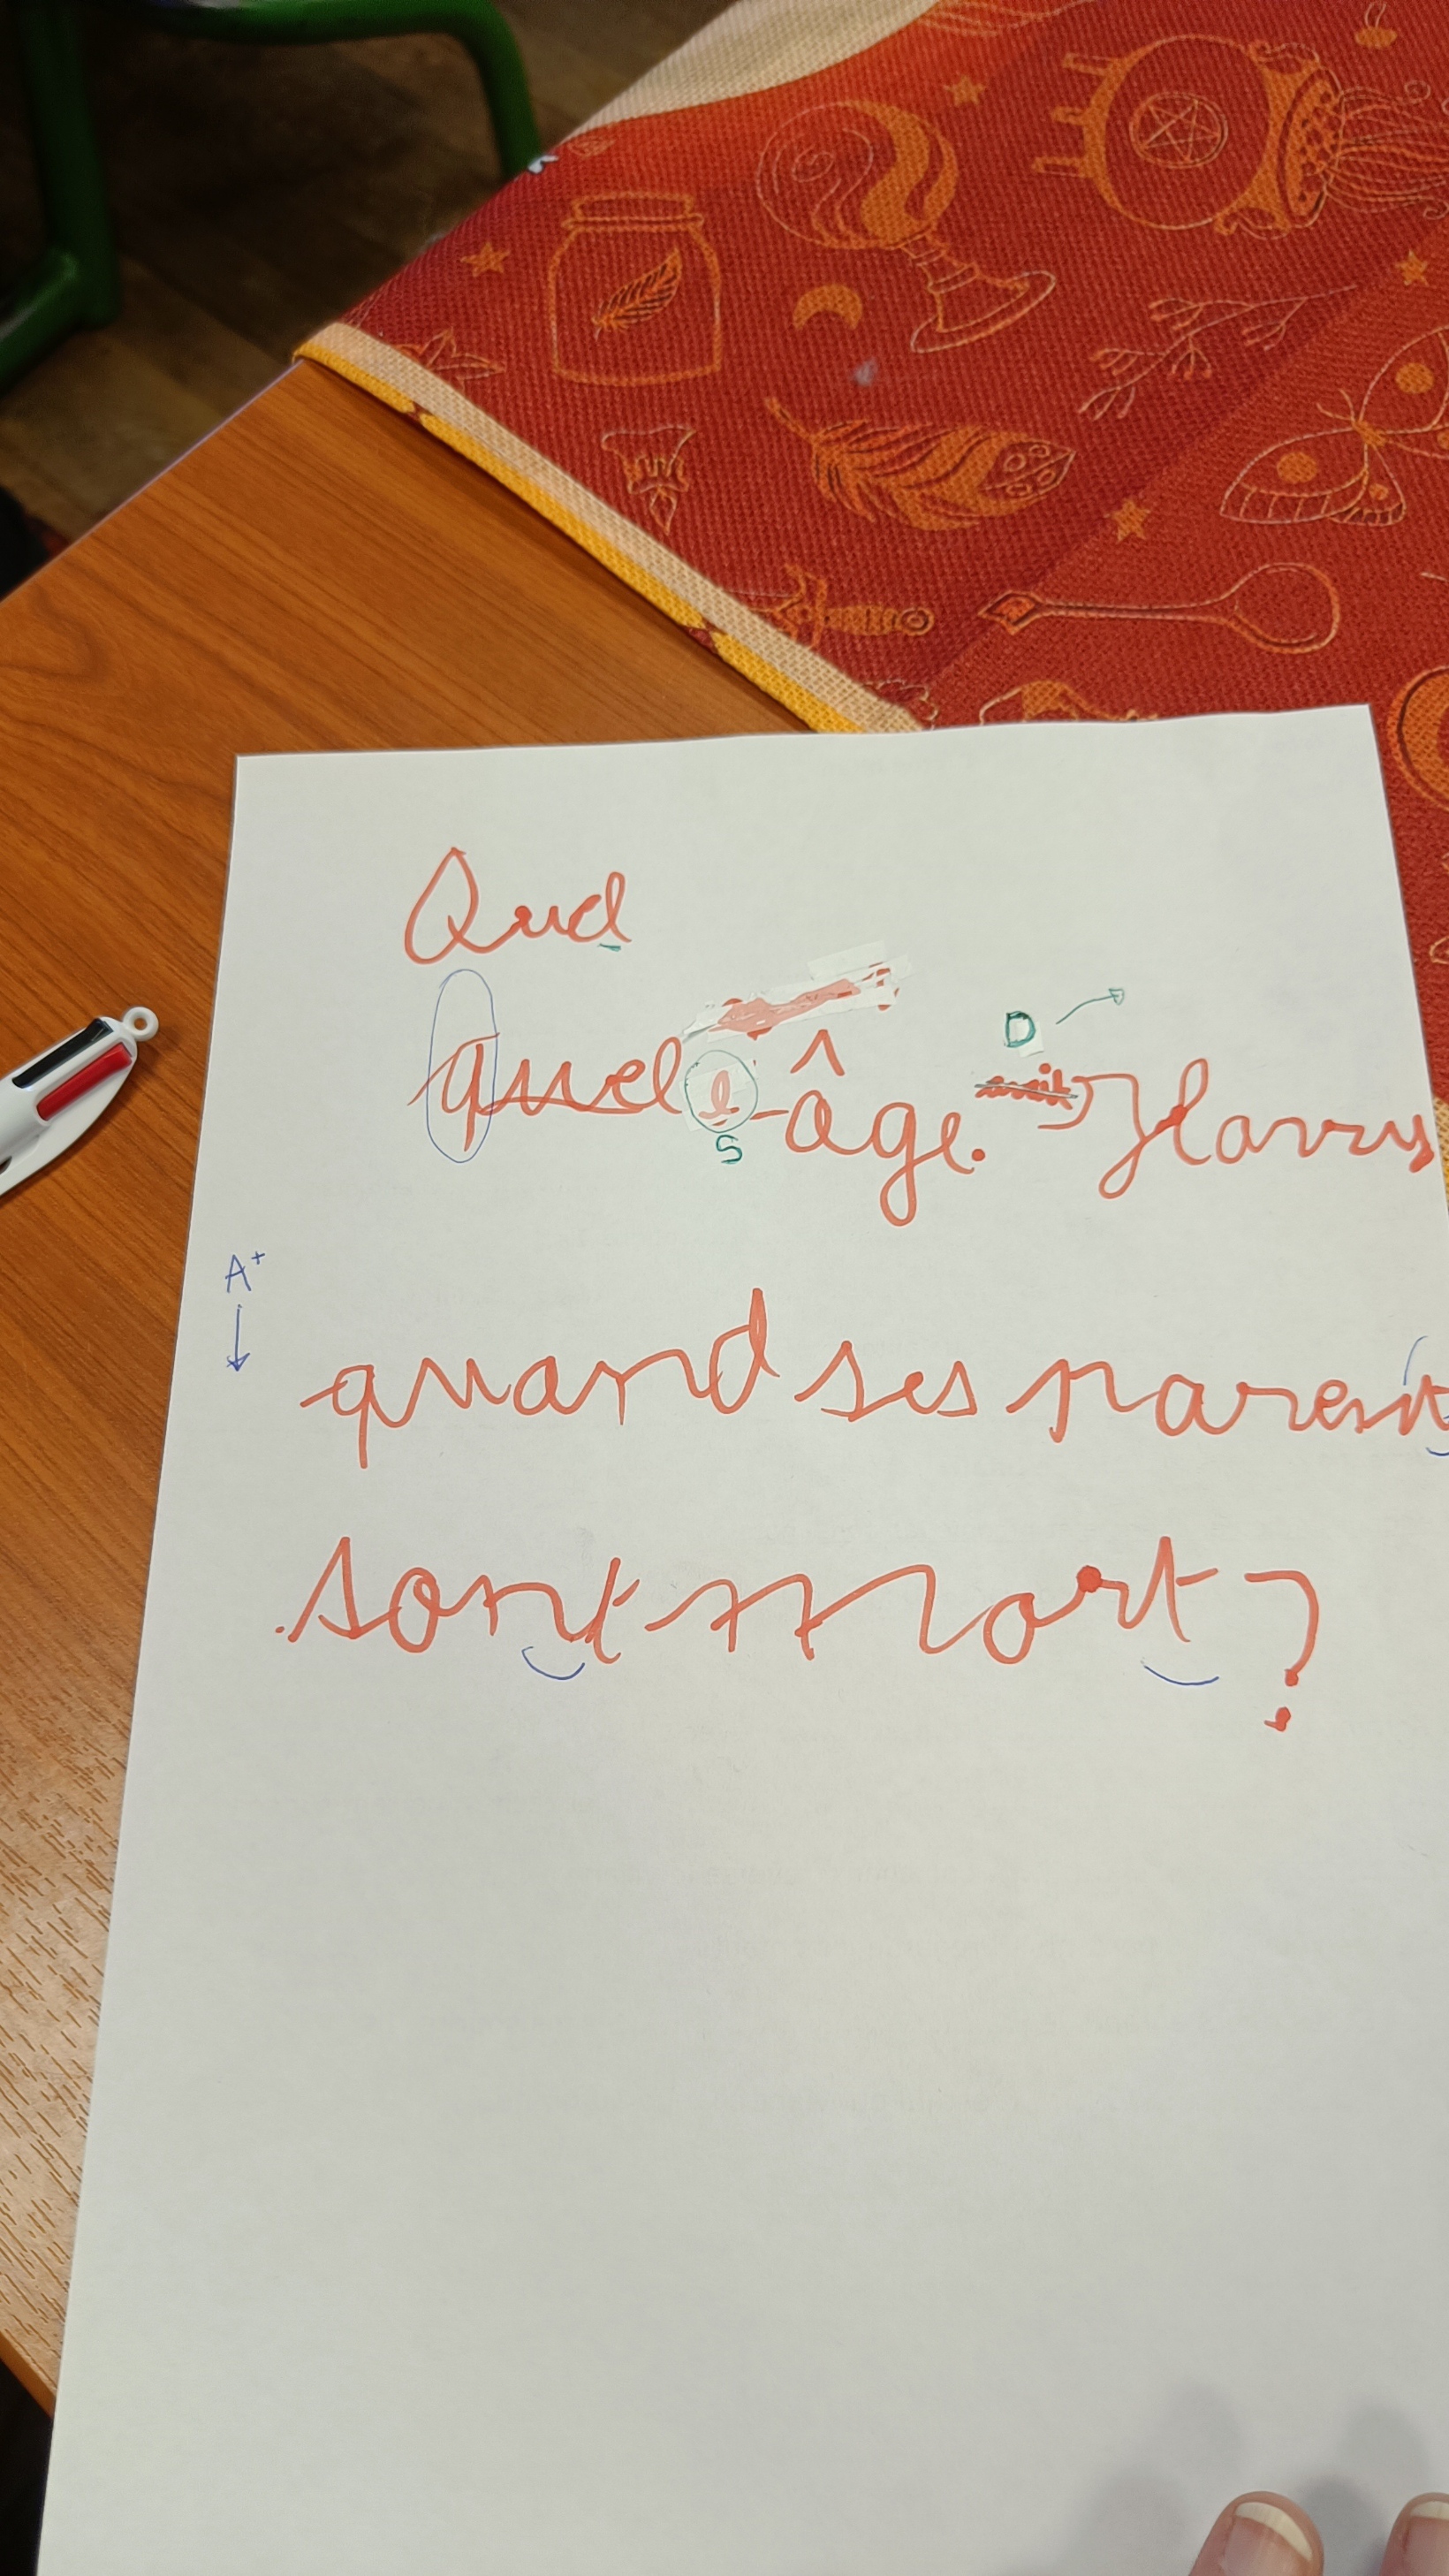 Quel
quel e -âge. avait Harrys
S
D
A+
quand ses parents
sont mort ?